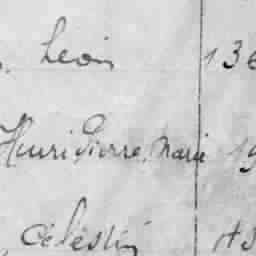 , Léon 136
Henri Pierre, Marie 19
, Célestin